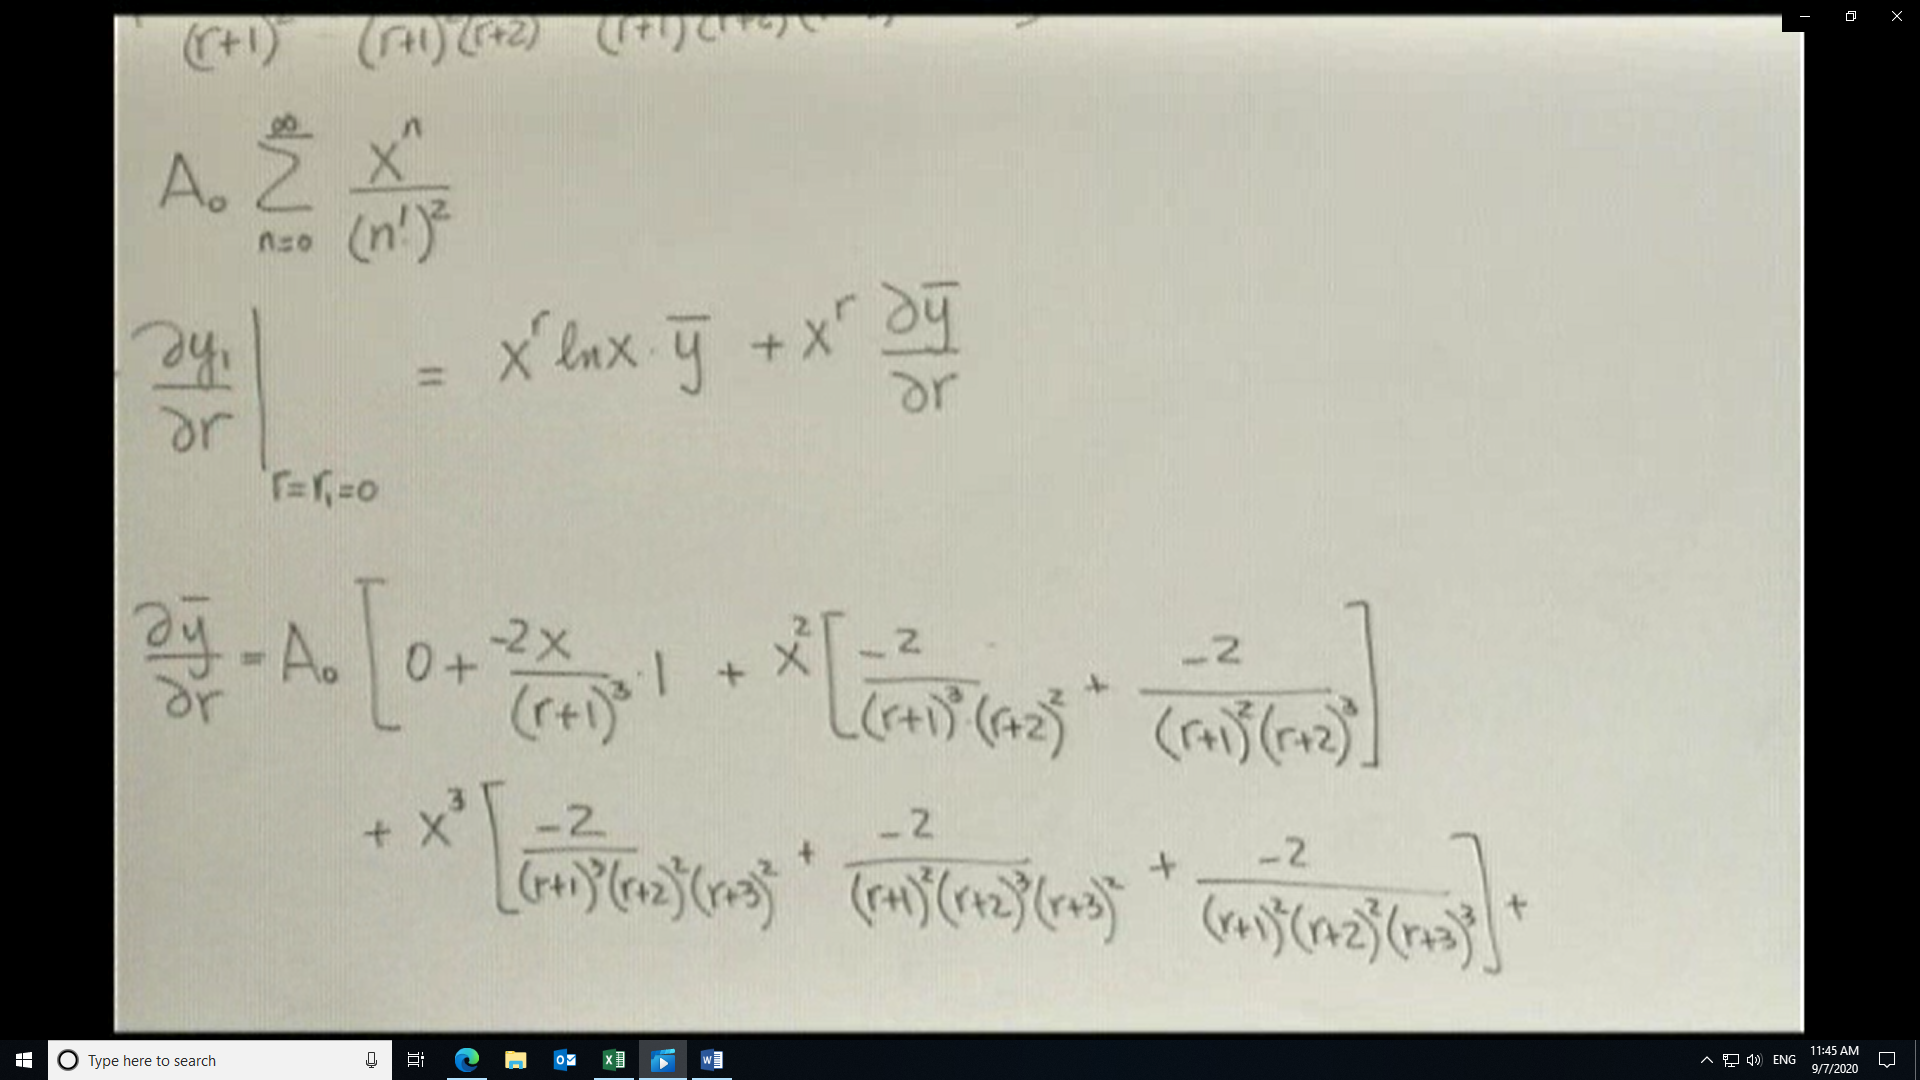 (r+1)² (r+1)²(r+2)
A₀ ∑_{n=0}^{∞} xⁿ/(n!)²
∂y₁/∂r |_{r=r₁=0} = x^r lnx · ȳ + x^r ∂ȳ/∂r
∂ȳ/∂r = A₀ [ 0 + -2x/(r+1)³ · 1 + x² [ -2/((r+1)³·(r+2)²) + -2/((r+1)²(r+2)³) ]
+ x³ [ -2/((r+1)³(r+2)²(r+3)²) + -2/((r+1)²(r+2)³(r+3)²) + -2/((r+1)²(r+2)²(r+3)³) ] +
Type here to search
ENG
11:45 AM
9/7/2020